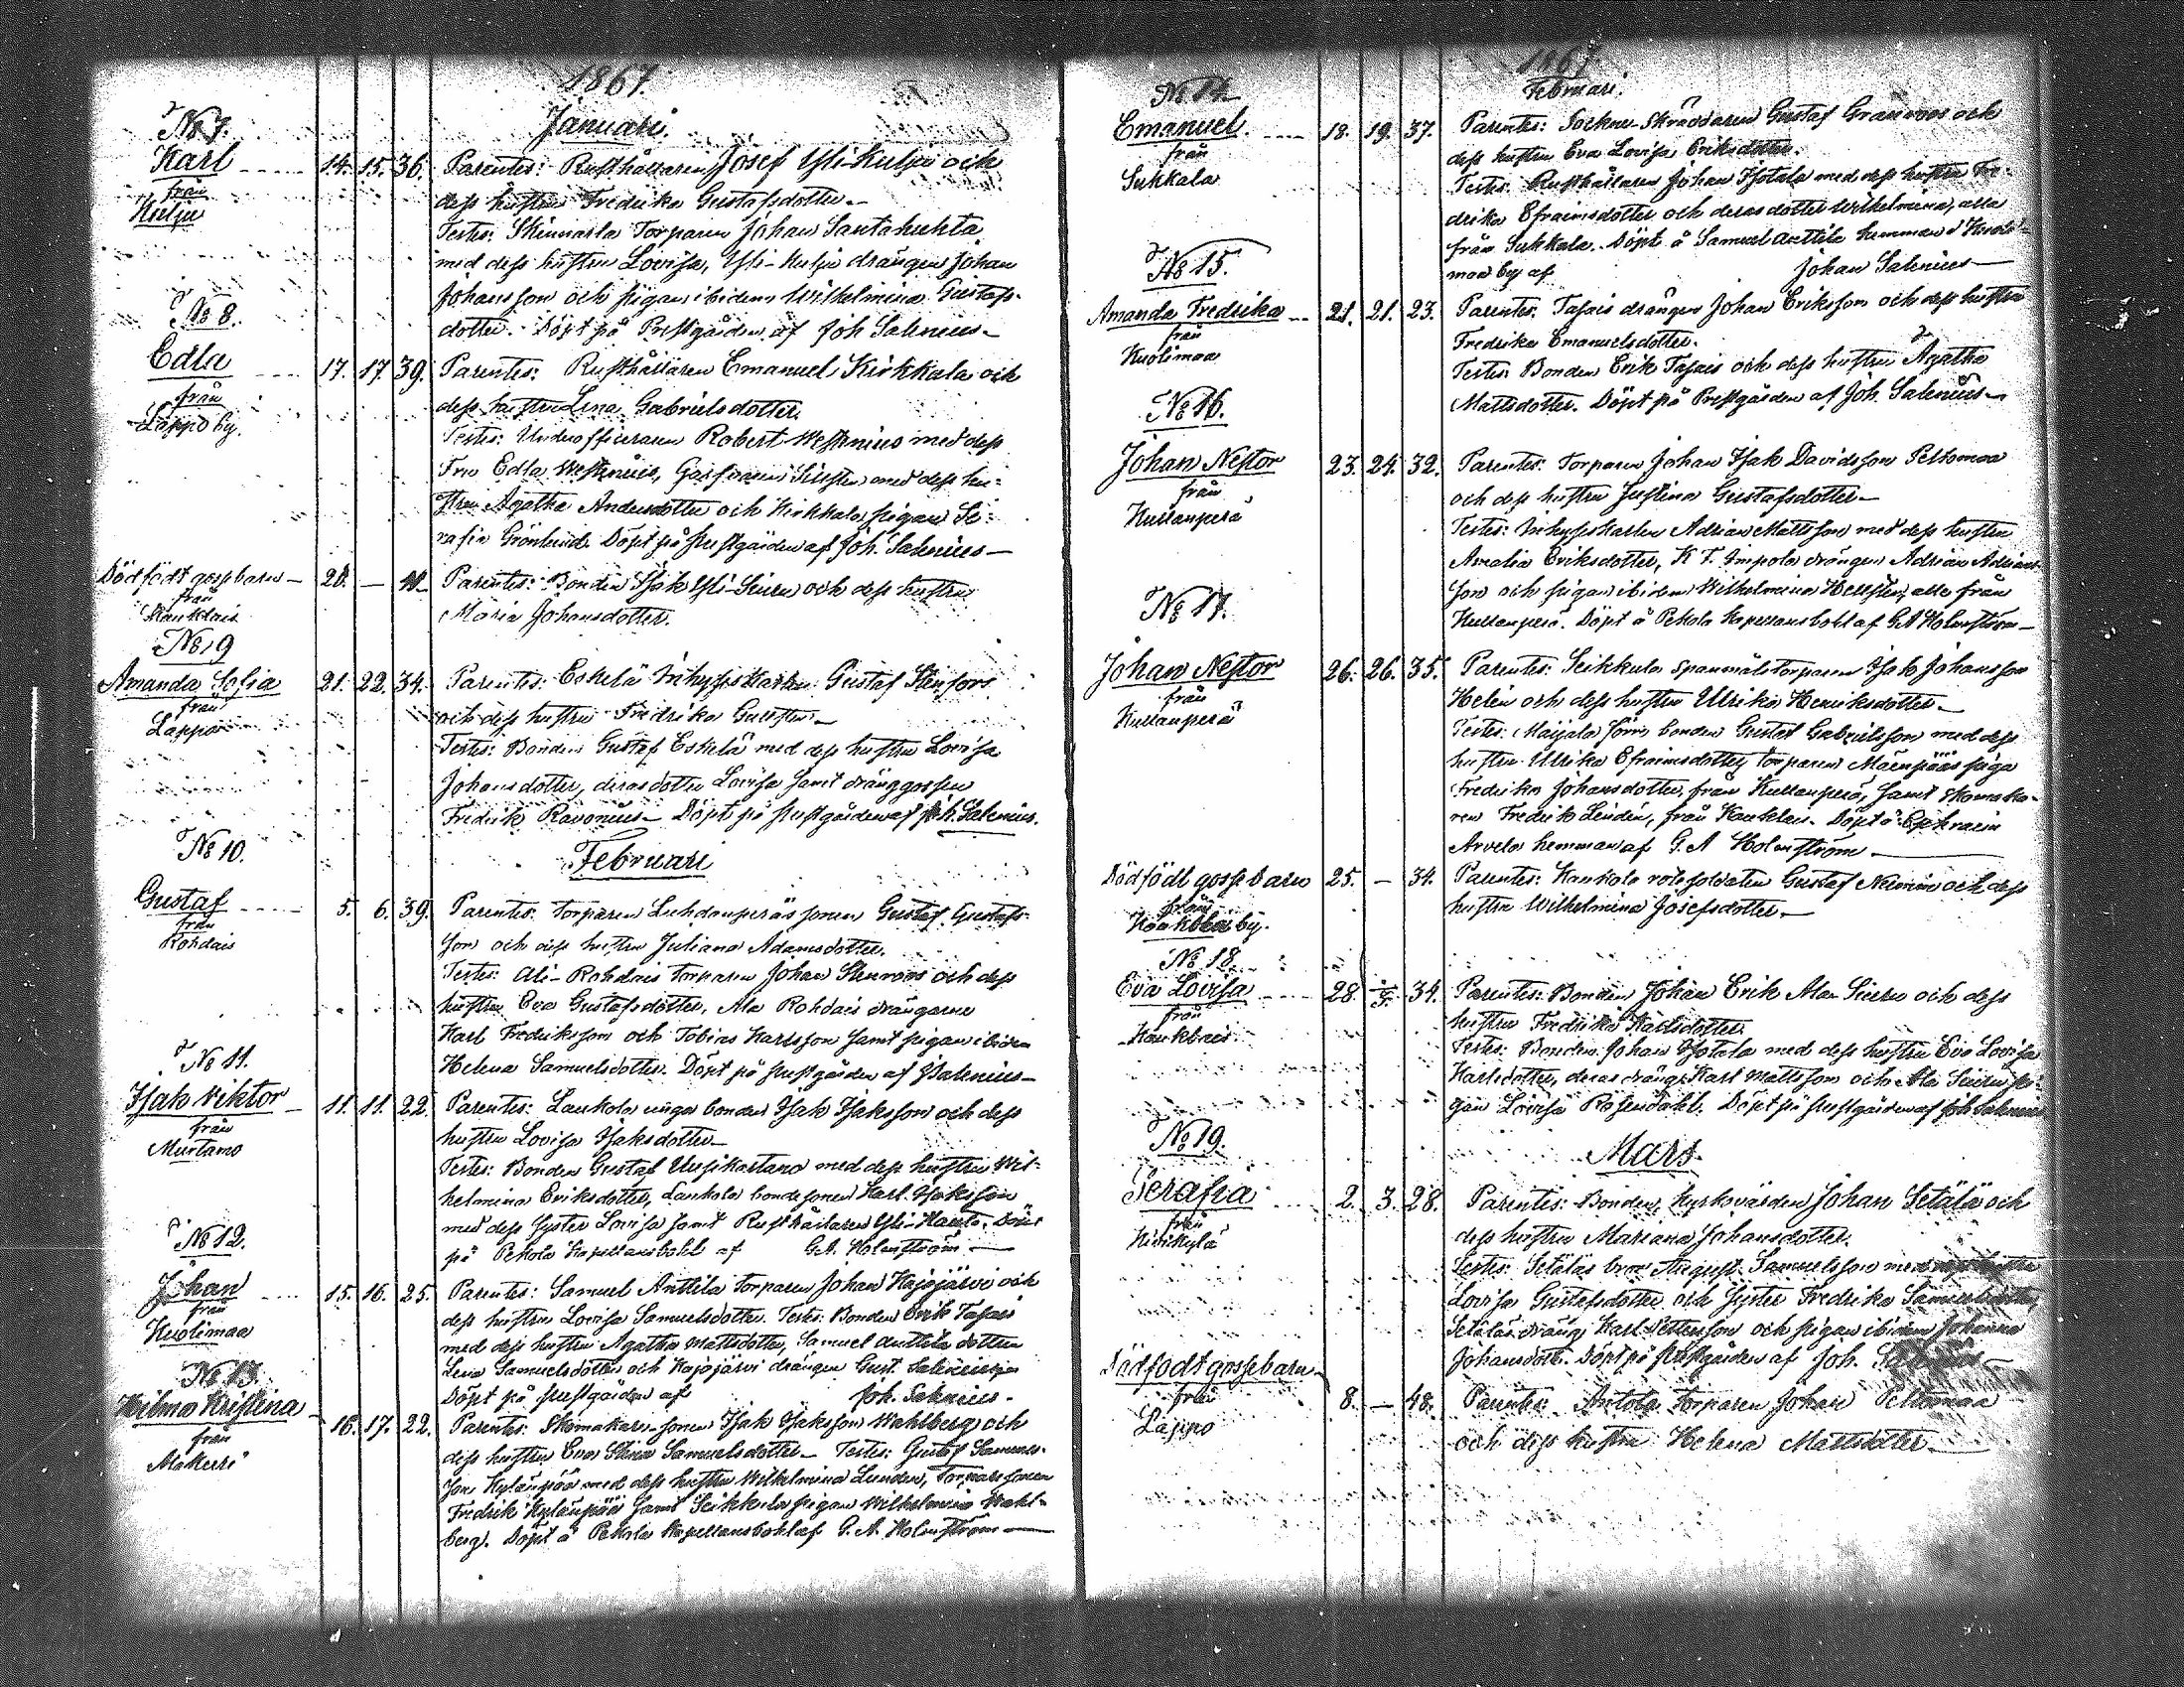 1867.
Januari.
No 7.
Karl 14. 15. 36.
från
Parentes: Rusthållaren Josef Yli-Kulju och
dess hustru Fredrika Gustafsdotter.
Testes: Skinnarla Torparen Johan Santahuhta
med dess hustru Lovisa, Yli-Kulju drängen Johan
Johansson och pigan ibidem Wilhelmina Gustafs-
dotter. Döpt på Prestgården af Joh. Salenius
No 8.
Edla 17. 17. 39.
från
Lappo by.
Parentes: Rusthållaren Emanuel Kirkkala och
dess hustru Lena Gabrielsdotter.
Testes: Underofficeraren Robert Westenius med dess
Fru Edla Westenius, med dess hu-
stru Agatha Andersdotter och Kirkkala pigan Se-
rafia Grönlund. Döpt på prestgården af Joh. Salenius
Dödfödt gossebarn 20. —
från
Kauklais
Parentes: Bonden Isak Yli-Seuru och dess hustru
Maria Johansdotter.
No 9
Amanda Sofia 21. 22. 34.
från
Lappo
Parentes: Eskelä Inhyseskarlen Gustaf Stenfors
och dess hustru Fredrika
Testes: Bonden Gustaf Eskelä med dess hustru Lovisa
Johansdotter, deras dotter Lovisa samt dränggossen
Fredrik Ravonius. Döpt på prestgården af Joh. Salenius.
Februari
No 10.
Gustaf 5. 6. 39.
från
Rohdais
Parentes: Torparen Luhdanperäs sonen Gustaf Gustafs-
son och dess hustru Juliana Adamsdotter.
Testes: Ali-Rohdais torparen Johan Stenroos och dess
hustru Eva Gustafsdotter, Ala Rohdais drängarne
Karl Fredriksson och Tobias Karlsson samt pigan ibidem
Helena Samuelsdotter. Döpt på prestgården af J Salenius
No 11.
Isak Viktor 11. 11. 22.
från
Murtamo
Parentes: Laukola unga bonden Isak Isaksson och dess
hustru Lovisa Isaksdotter
Testes: Bonden Gustaf Uusikartano med dess hustru Wil-
helmina Eriksdotter, Laukola bondesonen Karl Isaksson
med dess syster Lovisa samt Rusthållaren Yli- Döpt
på Pekola Kapellansbohl af G.A. Holmström
No 12.
Johan 15. 16. 25.
från
Kuolimaa
Parentes: Samuel Anttila torparen Johan Kajajärvi och
dess hustru Lovisa Samuelsdotter. Testes: Bonden Erik Tasais
med dess hustru Agatha Mattsdotter, Samuel Anttila dotter
Lena Samuelsdotter och Kajajärvi drängen Gust.
Döpt på prestgården af Joh. Salenius.
No 13.
Hilma Kristina 16. 17. 22.
från
Mäkerri
Parentes: Skomakare-sonen Isak Isaksson Wahlberg och
dess hustru Eva Stina Samuelsdotter. Testes: Gustaf Samuels-
son Kylänpää med dess hustru Wilhelmina Linden, Torparesonen
Fredrik Kylänpää samt Seikkula pigan Wilhelmina Wahl-
berg. Döpt å Pekola Kapellansbohl af G. A. Holmström
1867
Februari.
No 14.
Emanuel. 18. 19. 37.
från
Sukkala
Parentes: Sockne-Skräddaren Gustaf Granroos och
dess hustru Eva Lovisa Eriksdotter.
Testes: Rusthållaren Johan Isotalo med dess hustru Fre-
drika Efraimsdotter och deras dotter Wilhelmina, alla
från Sukkala. Döpt å Samuel Anttila hemman i Kuoli-
maa by af Johan Salenius
No 15.
Amanda Fredrika 21. 21. 23.
från
Kuolimaa
Parentes: Tasais drängen Johan Eriksson och dess hustru
Fredrika Emanuelsdotter.
Testes: Bonden Erik Tasais och dess hustru Agatha
Mattsdotter. Döpt på Prestgården af Joh. Salenius
No 16.
Johan Nestor 23. 24. 32.
från
Kullanperä
Parentes: Torparen Johan Isak Davidsson Peltomaa
och dess hustru Justina Gustafsdotter
Testes: Inhyseskarlen Adrian Mattsson med dess hustru
Amalia Eriksdotter, K T. Impola drängen Adrian Adrians-
son och pigan ibidem Wilhelmina Hellsten, alla från
Kullanperä. Döpt å Pekola Kapellansbohl af G A Holmström
No 17.
Johan Nestor 26. 26. 35.
från
Kullanperä
Parentes: Seikkula spanmålstorparen Isak Johansson
Helen och dess hustru Ulrika Henriksdotter
Testes: Maijala förra bonden Gustaf Gabrielsson med dess
hustru Ulrika Efraimsdotter, torparen Mäenpääs piga
Fredrika Johansdotter, från Kullanperä, samt skomaka-
ren Fredrik Lindén, från Kauklais. Döpt å Ephraim
Arvela hemman af G. A Holmström
Dödfödt gossebarn 25. — 34.
från
by.
Parentes: Kankola rotesoldaten Gustaf och dess
hustru Wilhelmina Josefsdotter
No 18.
Eva Lovisa 28. 34.
från
Kauklais
Parentes: Bonden Johan Erik Alan Seuru och dess
hustru Fredrika Karlsdotter.
Testes: Bonden Johan Isotalo med dess hustru Eva Lovisa
Karlsdotter, deras dräng Karl Mattsson och Ala Seuru pi-
gan Lovisa Rosendahl. Döpt på prestgården af Joh Salenius
Mars
No 19.
Serafia 2. 3. 28.
från
Parentes: Bonden, kyrkovärden Johan Setälä och
dess hustru Mariana Johansdotter.
Testes: Setäläs bror August Samuelsson med dess hustru
Lovisa Gustafsdotter och syster Fredrika Samuelsdotter,
Setäläs dräng Karl Pettersson och pigan ibidem Johanna
Johansdott. Döpt på prestgården af Joh. Salenius
Dödfödt gossebarn 8. — 48.
från
Lappo
Parentes: Antola torparen Johan Peltomaa
och dess hustru Helena Mattsdotter